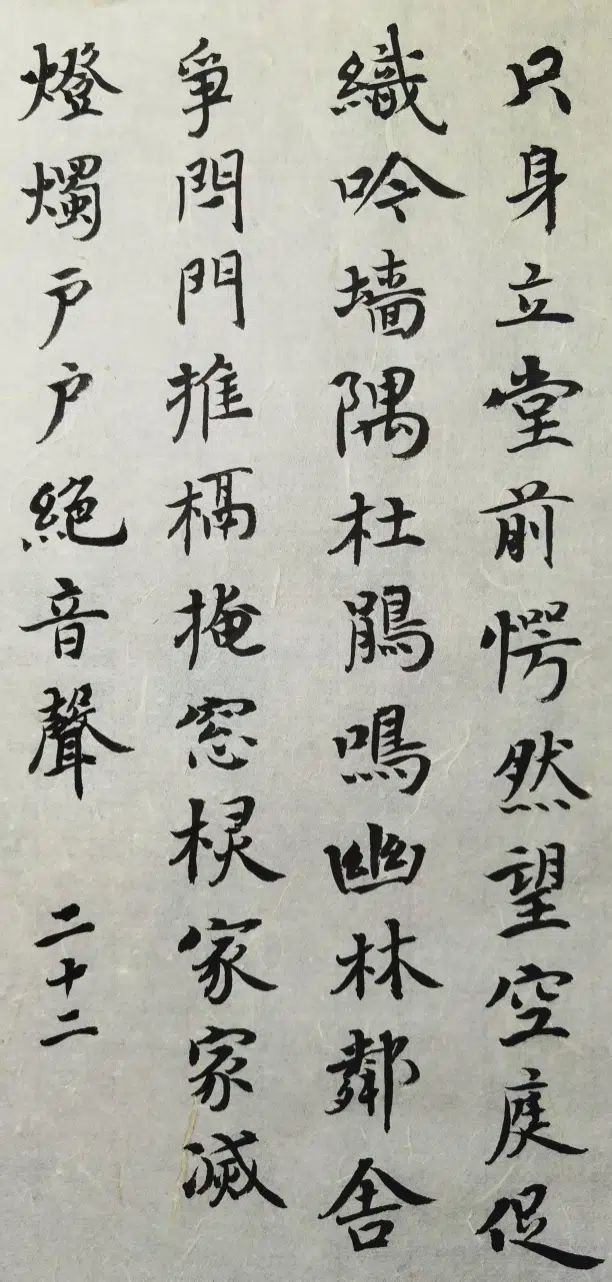 只身立堂前愕然望空庭促
織吟墙隅杜鵑鳴幽林鄰舍
爭閂門推槅掩窓棂家家滅
燈燭户户絕音聲
二十二